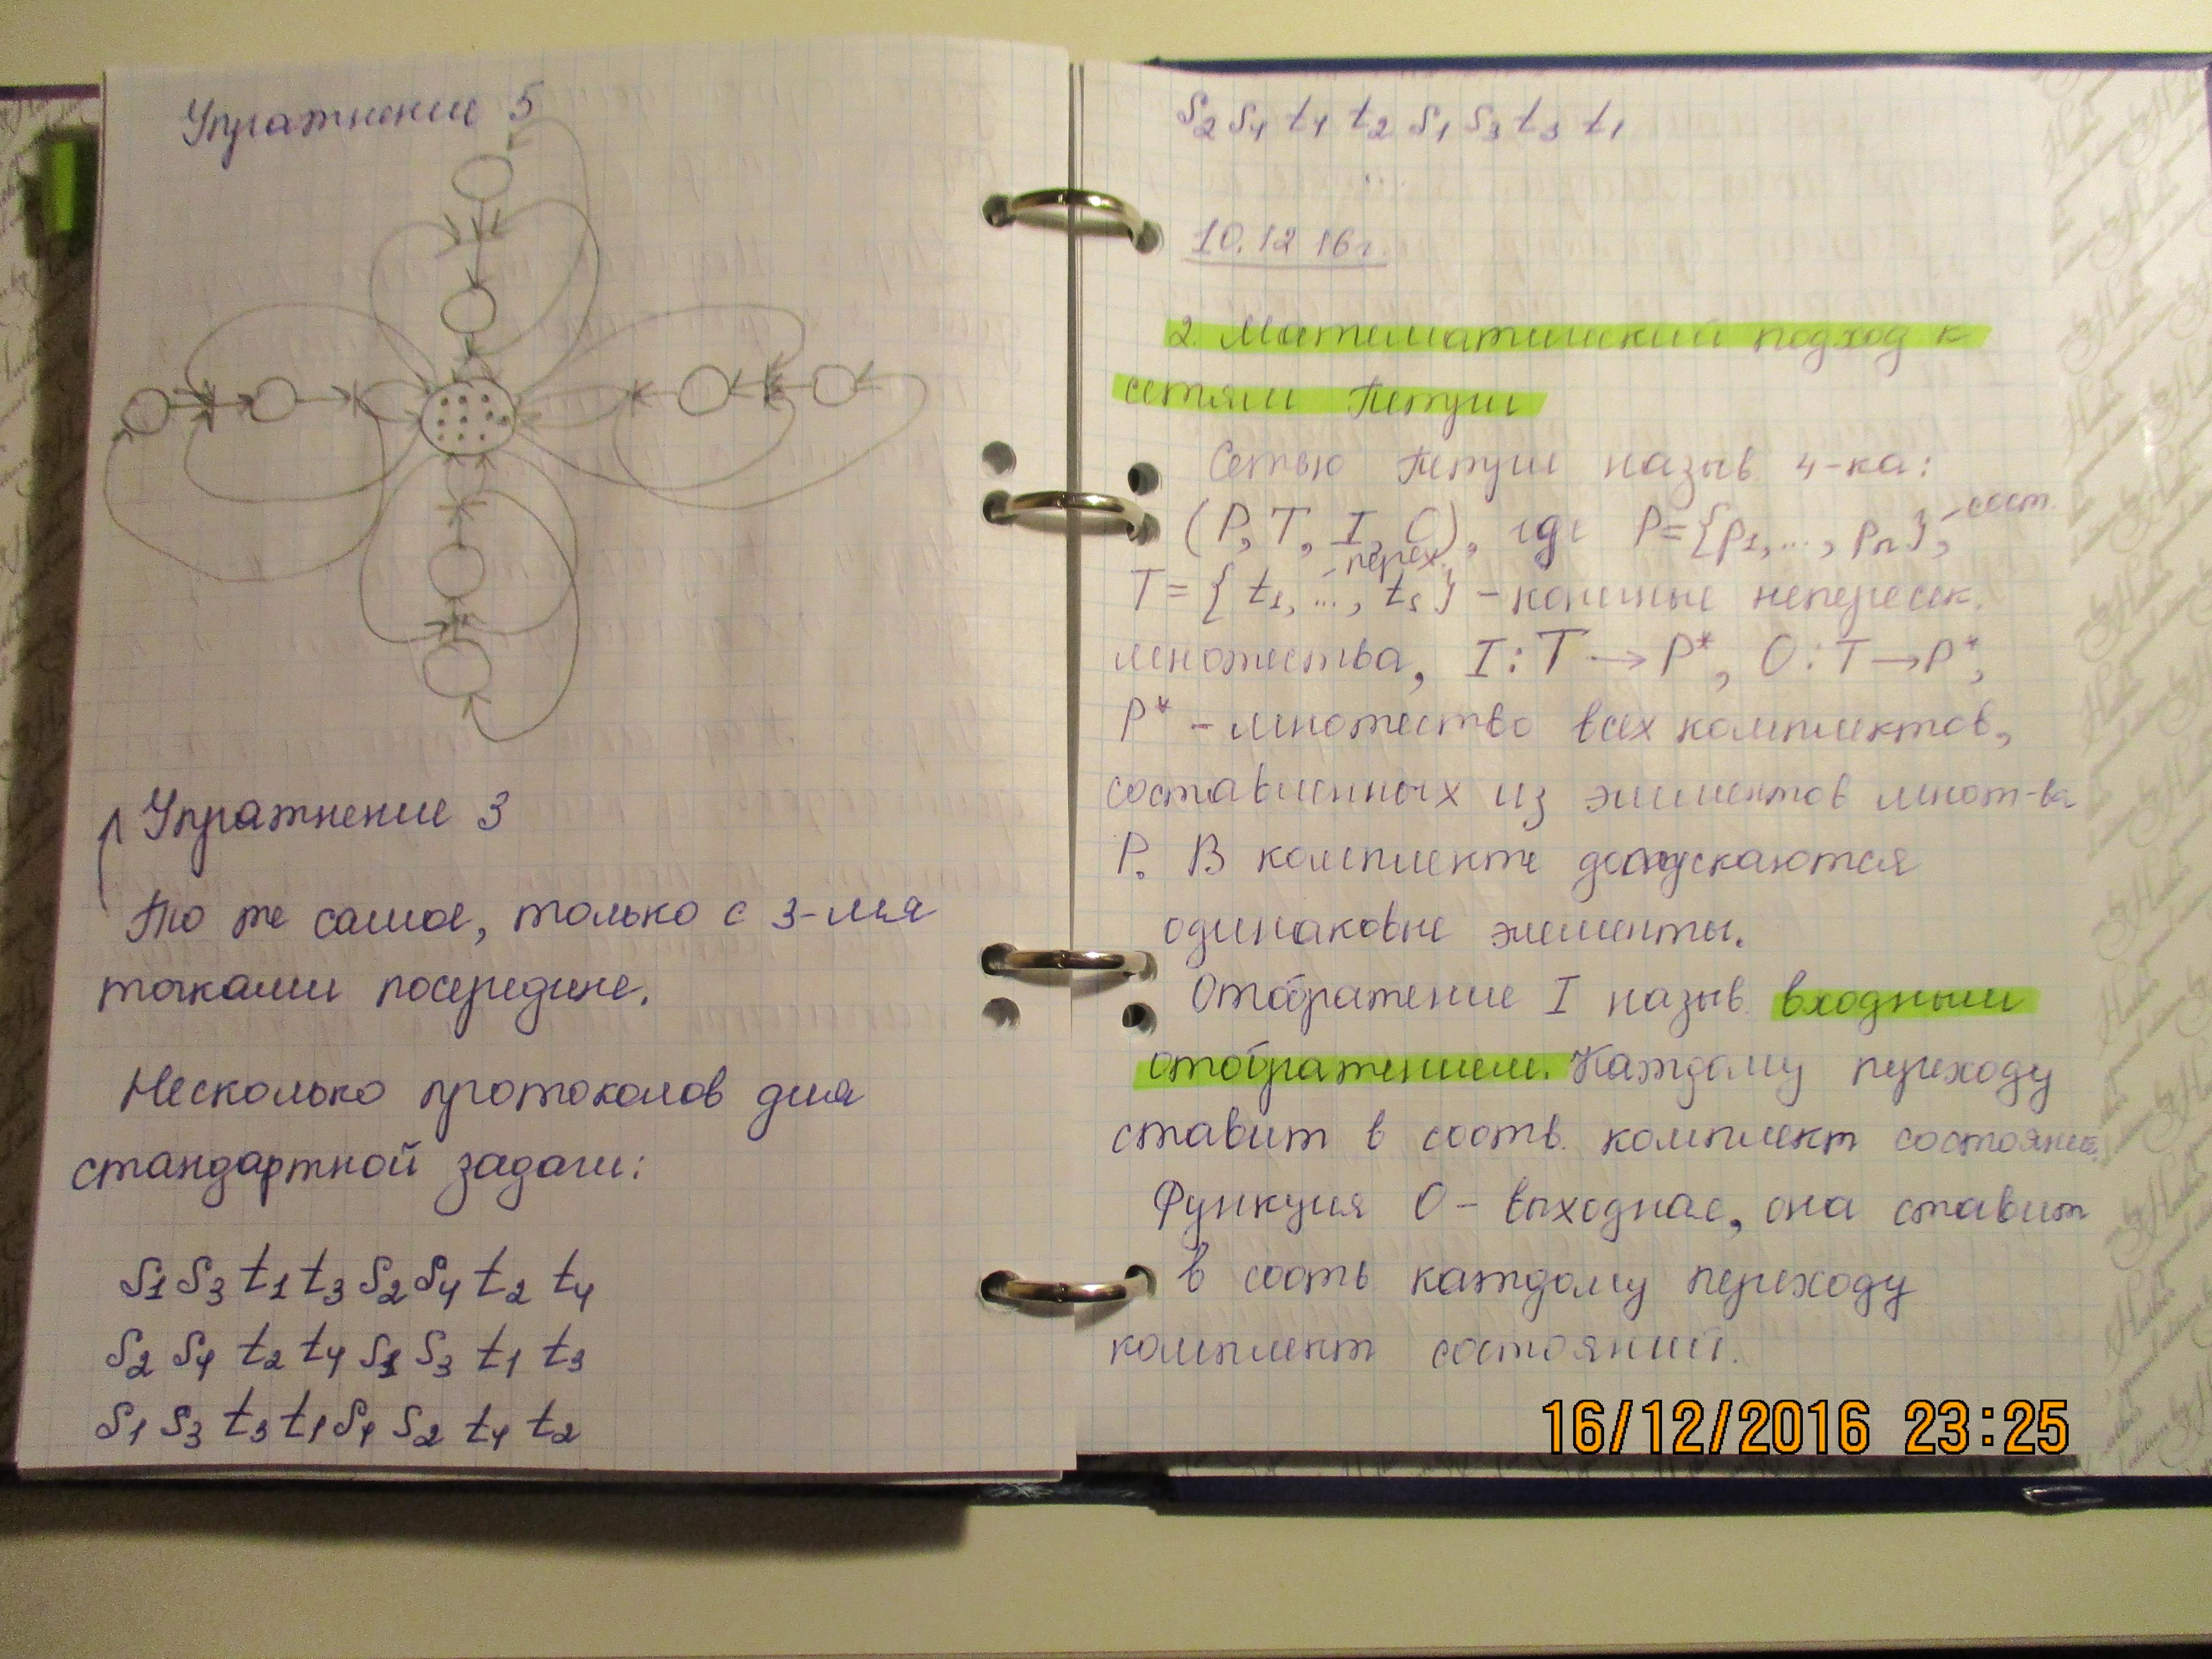 Упражнение 5
Упражнение 3
То же самое, только с 3-мя
точками посередине.
Несколько протоколов для
стандартной задачи:
S1 S3 t1 t3 S2 S4 t2 t4
S2 S4 t2 t4 S1 S3 t1 t3
S1 S3 t3 t1 S4 S2 t4 t2
S2 S4 t4 t2 S1 S3 t3 t1
10.12 16г.
2. Математический подход к
сетям Петри
Сетью Петри назыв 4-ка:
(P, T, I, O), где P={p1,..., pn}, - сост.
перех.
T={t1,..., ts} - конечные непересек.
множества, I: T → P*, O: T → P*,
P* - множество всех комплектов,
составленных из элементов множ-ва
P. В комплекте допускаются
одинаковые элементы.
Отображение I назыв. входным
отображением. Каждому переходу
ставит в соотв. комплект состояний.
Функция O - выходная, она ставит
в соотв каждому переходу
комплект состояний.
16/12/2016 23:25